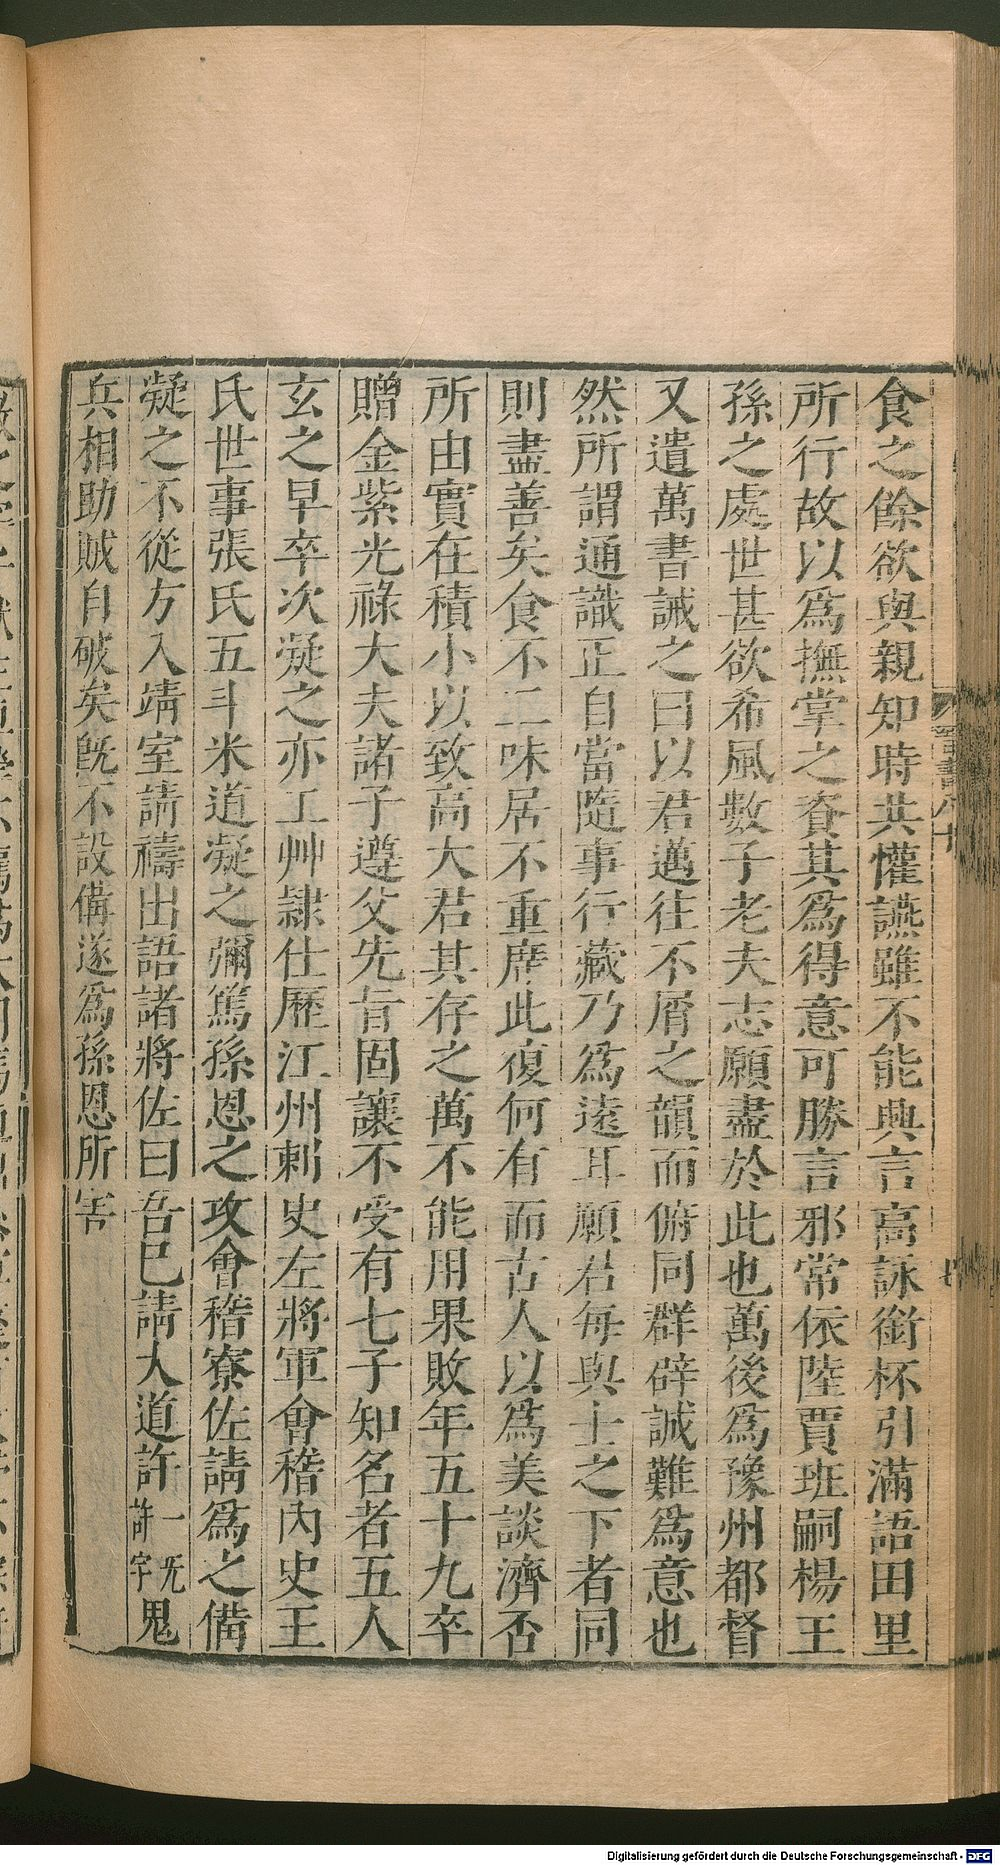 食之餘欲與親知時共懽讌雖不能興言高詠銜杯引滿語田里
所行故以爲撫掌之資其爲得意可勝言邪常依陸賈班嗣楊王
孫之處世甚欲希風數子老夫志願盡於此也萬後爲豫州都督
又遺萬書誡之曰以君邁往不屑之韻而俯同群辟誠難爲意也
然所謂通識正自當隨事行藏乃爲遠耳願君每與士之下者同
則盡善矣食不二味居不重席此復何有而古人以爲美談濟否
所由實在積小以致高大君其存之萬不能用果敗年五十九卒
贈金紫光祿大夫諸子遵父先旨固讓不受有七子知名者五人
玄之早卒次凝之亦工艸隸仕歷江州刺史左將軍會稽內史王
氏世事張氏五斗米道凝之彌篤孫恩之攻會稽寮佐請爲之備
凝之不從方入靖室請禱出語諸將佐曰吾已請大道許一无許字鬼
兵相助賊自破矣旣不設備遂爲孫恩所害
晉書八十
Digitalisierung gefördert durch die Deutsche Forschungsgemeinschaft - DFG